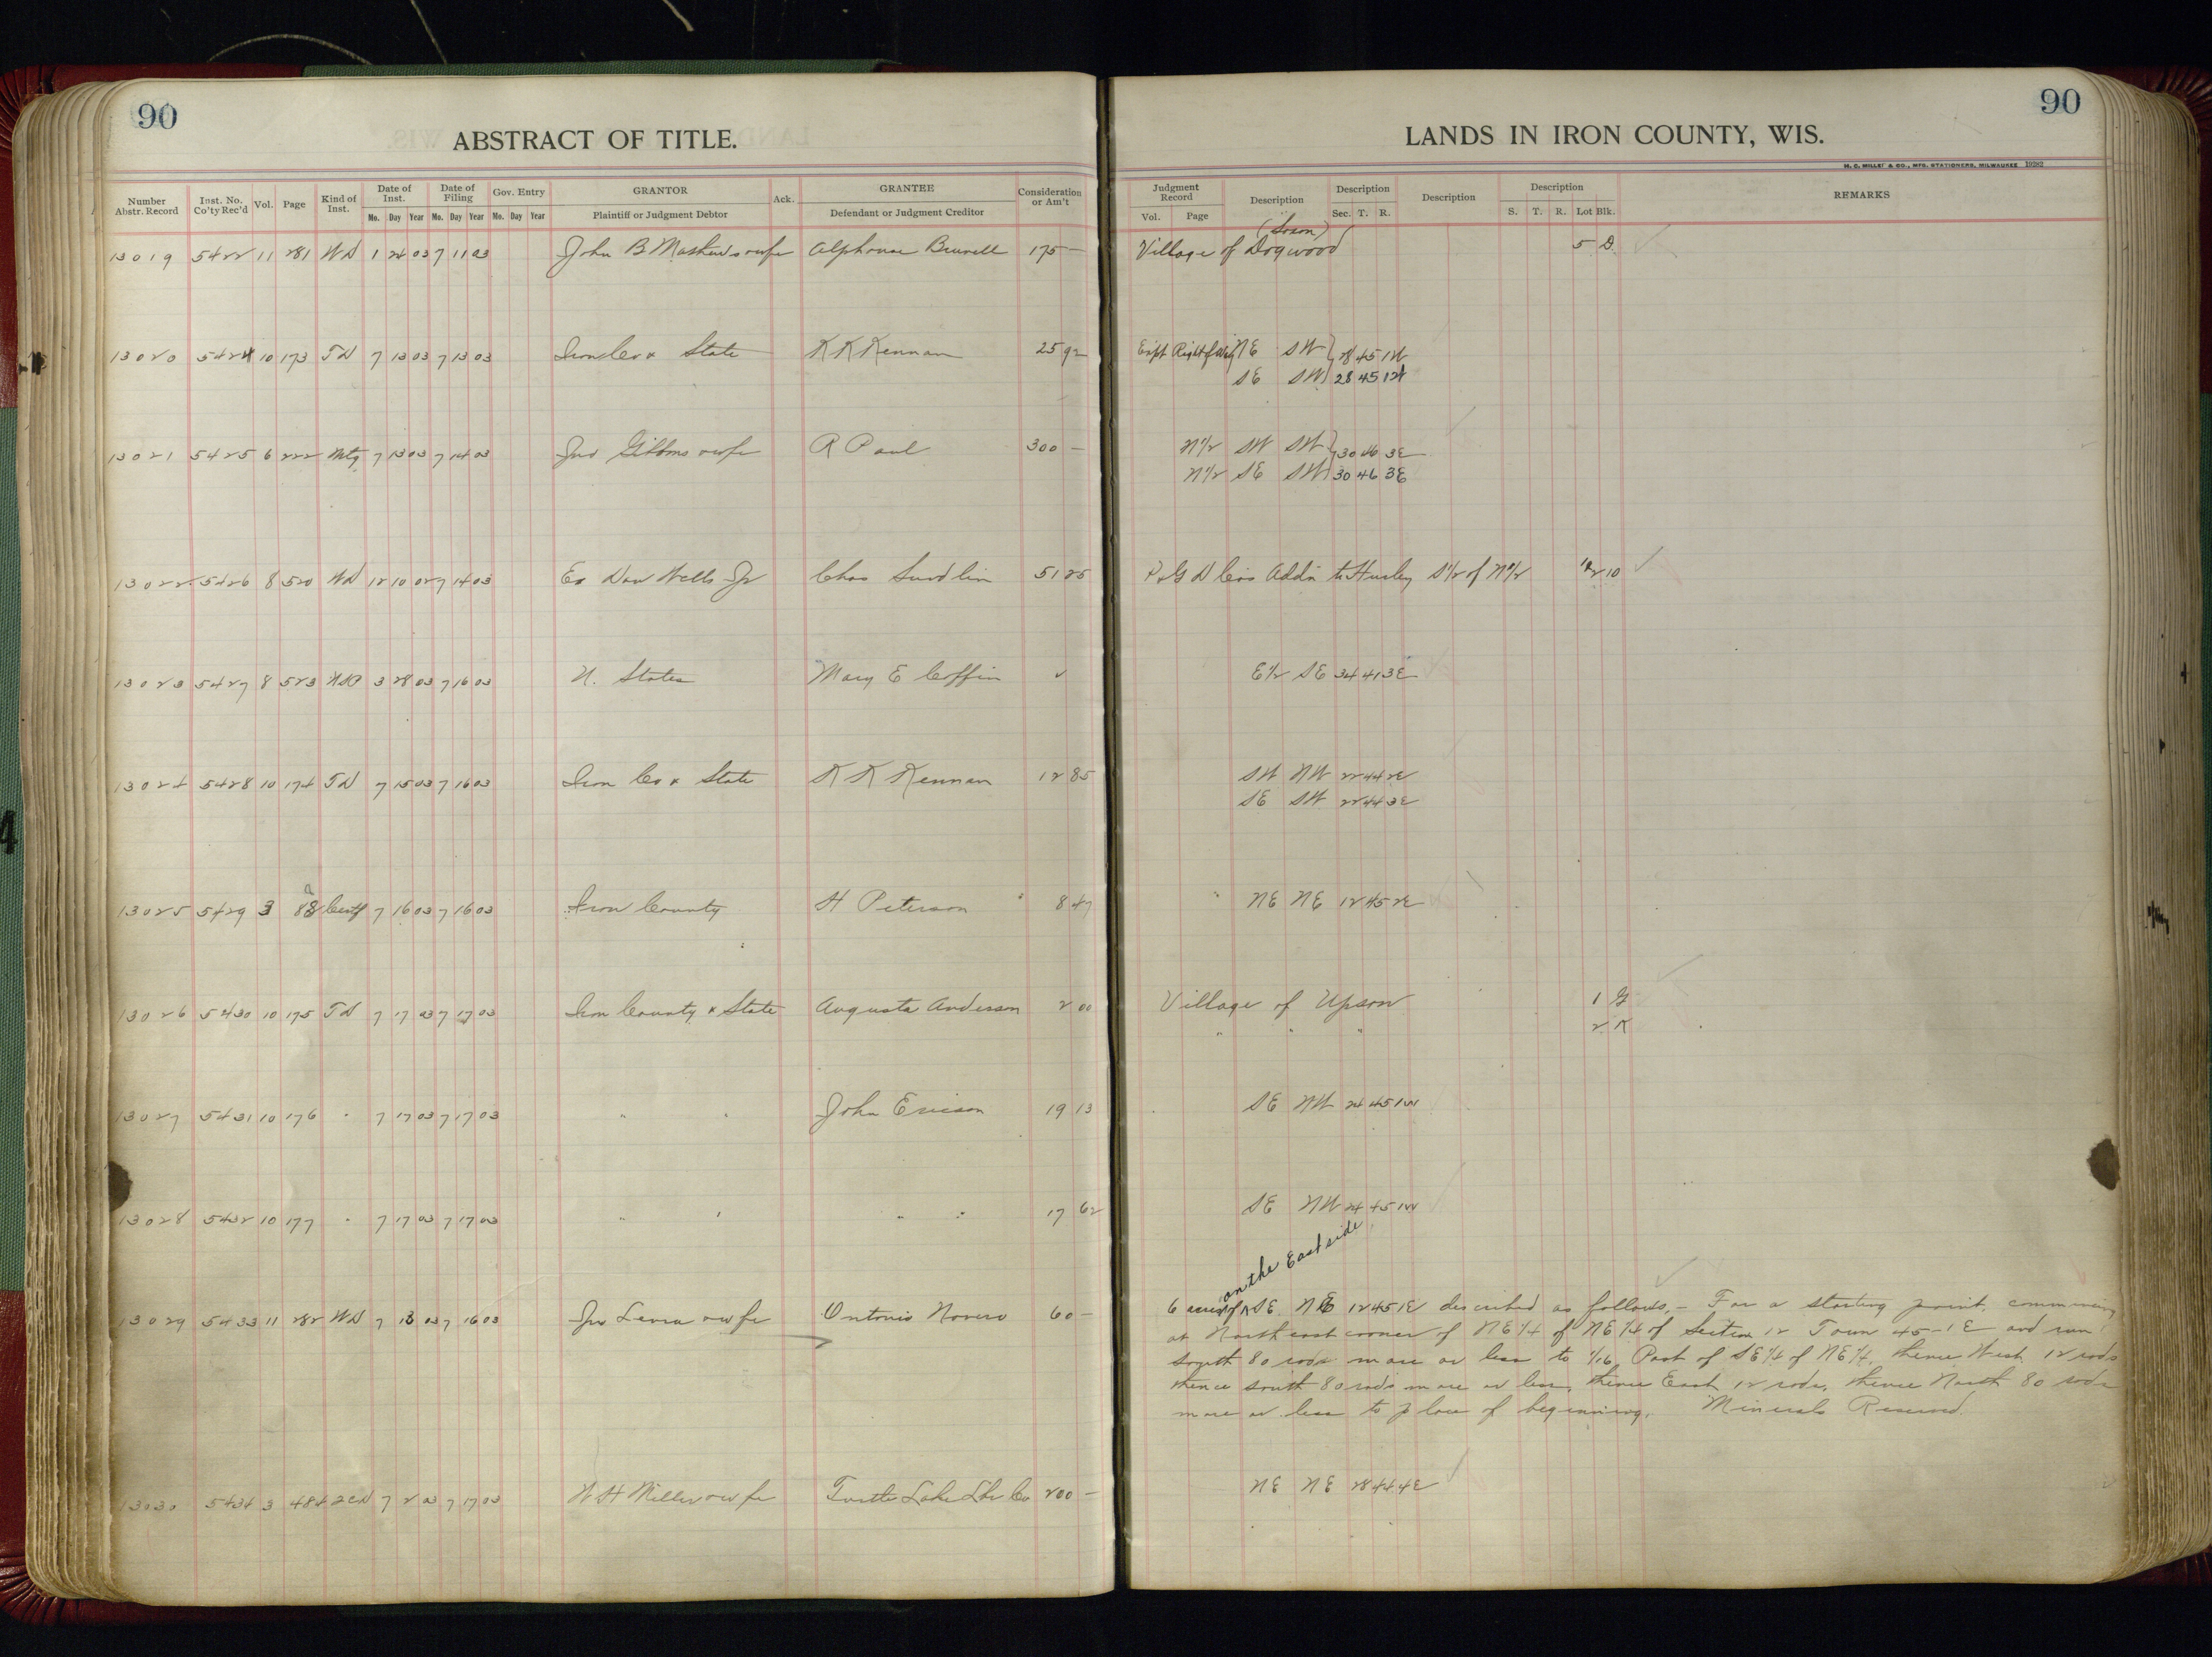 90
ABSTRACT OF TITLE.
Number Abstr. Record
Inst. No. Co'ty Rec'd
Vol.
Page
Kind of Inst.
Date of Inst.
Mo. Day Year
Date of Filing
Mo. Day Year
Gov. Entry
Mo. Day Year
GRANTOR
Plaintiff or Judgment Debtor
Ack.
GRANTEE
Defendant or Judgment Creditor
Consideration or Am't
90
LANDS IN IRON COUNTY, WIS.
H. C. MILLER & CO., MFG. STATIONERS, MILWAUKEE
Judgment Record
Vol. Page
Description
Description
Sec. T. R.
Description
Description
S. T. R. Lot Blk.
REMARKS
13019 5422 11 281 WD 1 24 03 7 11 03 John B Mathews & wife Alphonse Brunell 175 — Village of Dogwood 5 D
13020 5424 10 173 TD 7 13 03 7 13 03 Iron Co & State K K Kennan 25 92 Exept Right of Way NE SW 28 45 1W
SE SW 28 45 1W
13021 5425 6 222 Mtg 7 13 03 7 14 03 Jno Gibbons & wife R Paul 300 — N1/2 SW SW 30 46 3E
N1/2 SE SW 30 46 3E
13022 5426 8 520 WD 12 10 02 7 14 03 Ex Dan Wells Jr Chas Sundlin 51 25 P & G D Co's Add'n to Hurley S1/2 of N1/2 12 10
13023 5427 8 523 USP 3 28 03 7 16 03 U. States Mary E Coffin ✓ E1/2 SE 34 41 3E
13024 5428 10 174 TD 7 15 03 7 16 03 Iron Co & State K K Kennan 12 85 SW NW 22 44 2E
SE SW 22 44 3E
13025 5429 3 88 Certf 7 16 03 7 16 03 Iron County H Peterson 8 47 NE NE 12 45 2E
13026 5430 10 175 TD 7 17 03 7 17 03 Iron County & State Augusta Anderson 2 00 Village of Upson 1 G
" " " 2 K
13027 5431 10 176 " 7 17 03 7 17 03 " " John Ericson 19 13 SE NW 24 45 1W
13028 5432 10 177 " 7 17 03 7 17 03 " " " " 17 62 SE NW 24 45 1W
on the East side
13029 5433 11 282 WD 7 13 03 7 16 03 Jno Levra & wife Antonio Novero 60 — 6 acres of SE NE 12 45 1E described as follows,— For a starting point, commencing
at Northeast corner of NE 1/4 of NE 1/4 of Section 12 Town 45-1E and run
south 80 rods more or less to 1/16 Post of SE 1/4 of NE 1/4, thence West 12 rods
thence south 80 rods more or less, thence East 12 rods, thence North 80 rods
more or less to place of beginning. Minerals Reserved.
13030 5434 3 484 2CD 7 2 03 7 17 03 W H Miller & wife Turtle Lake Lbr Co 200 — NE NE 28 44 4E